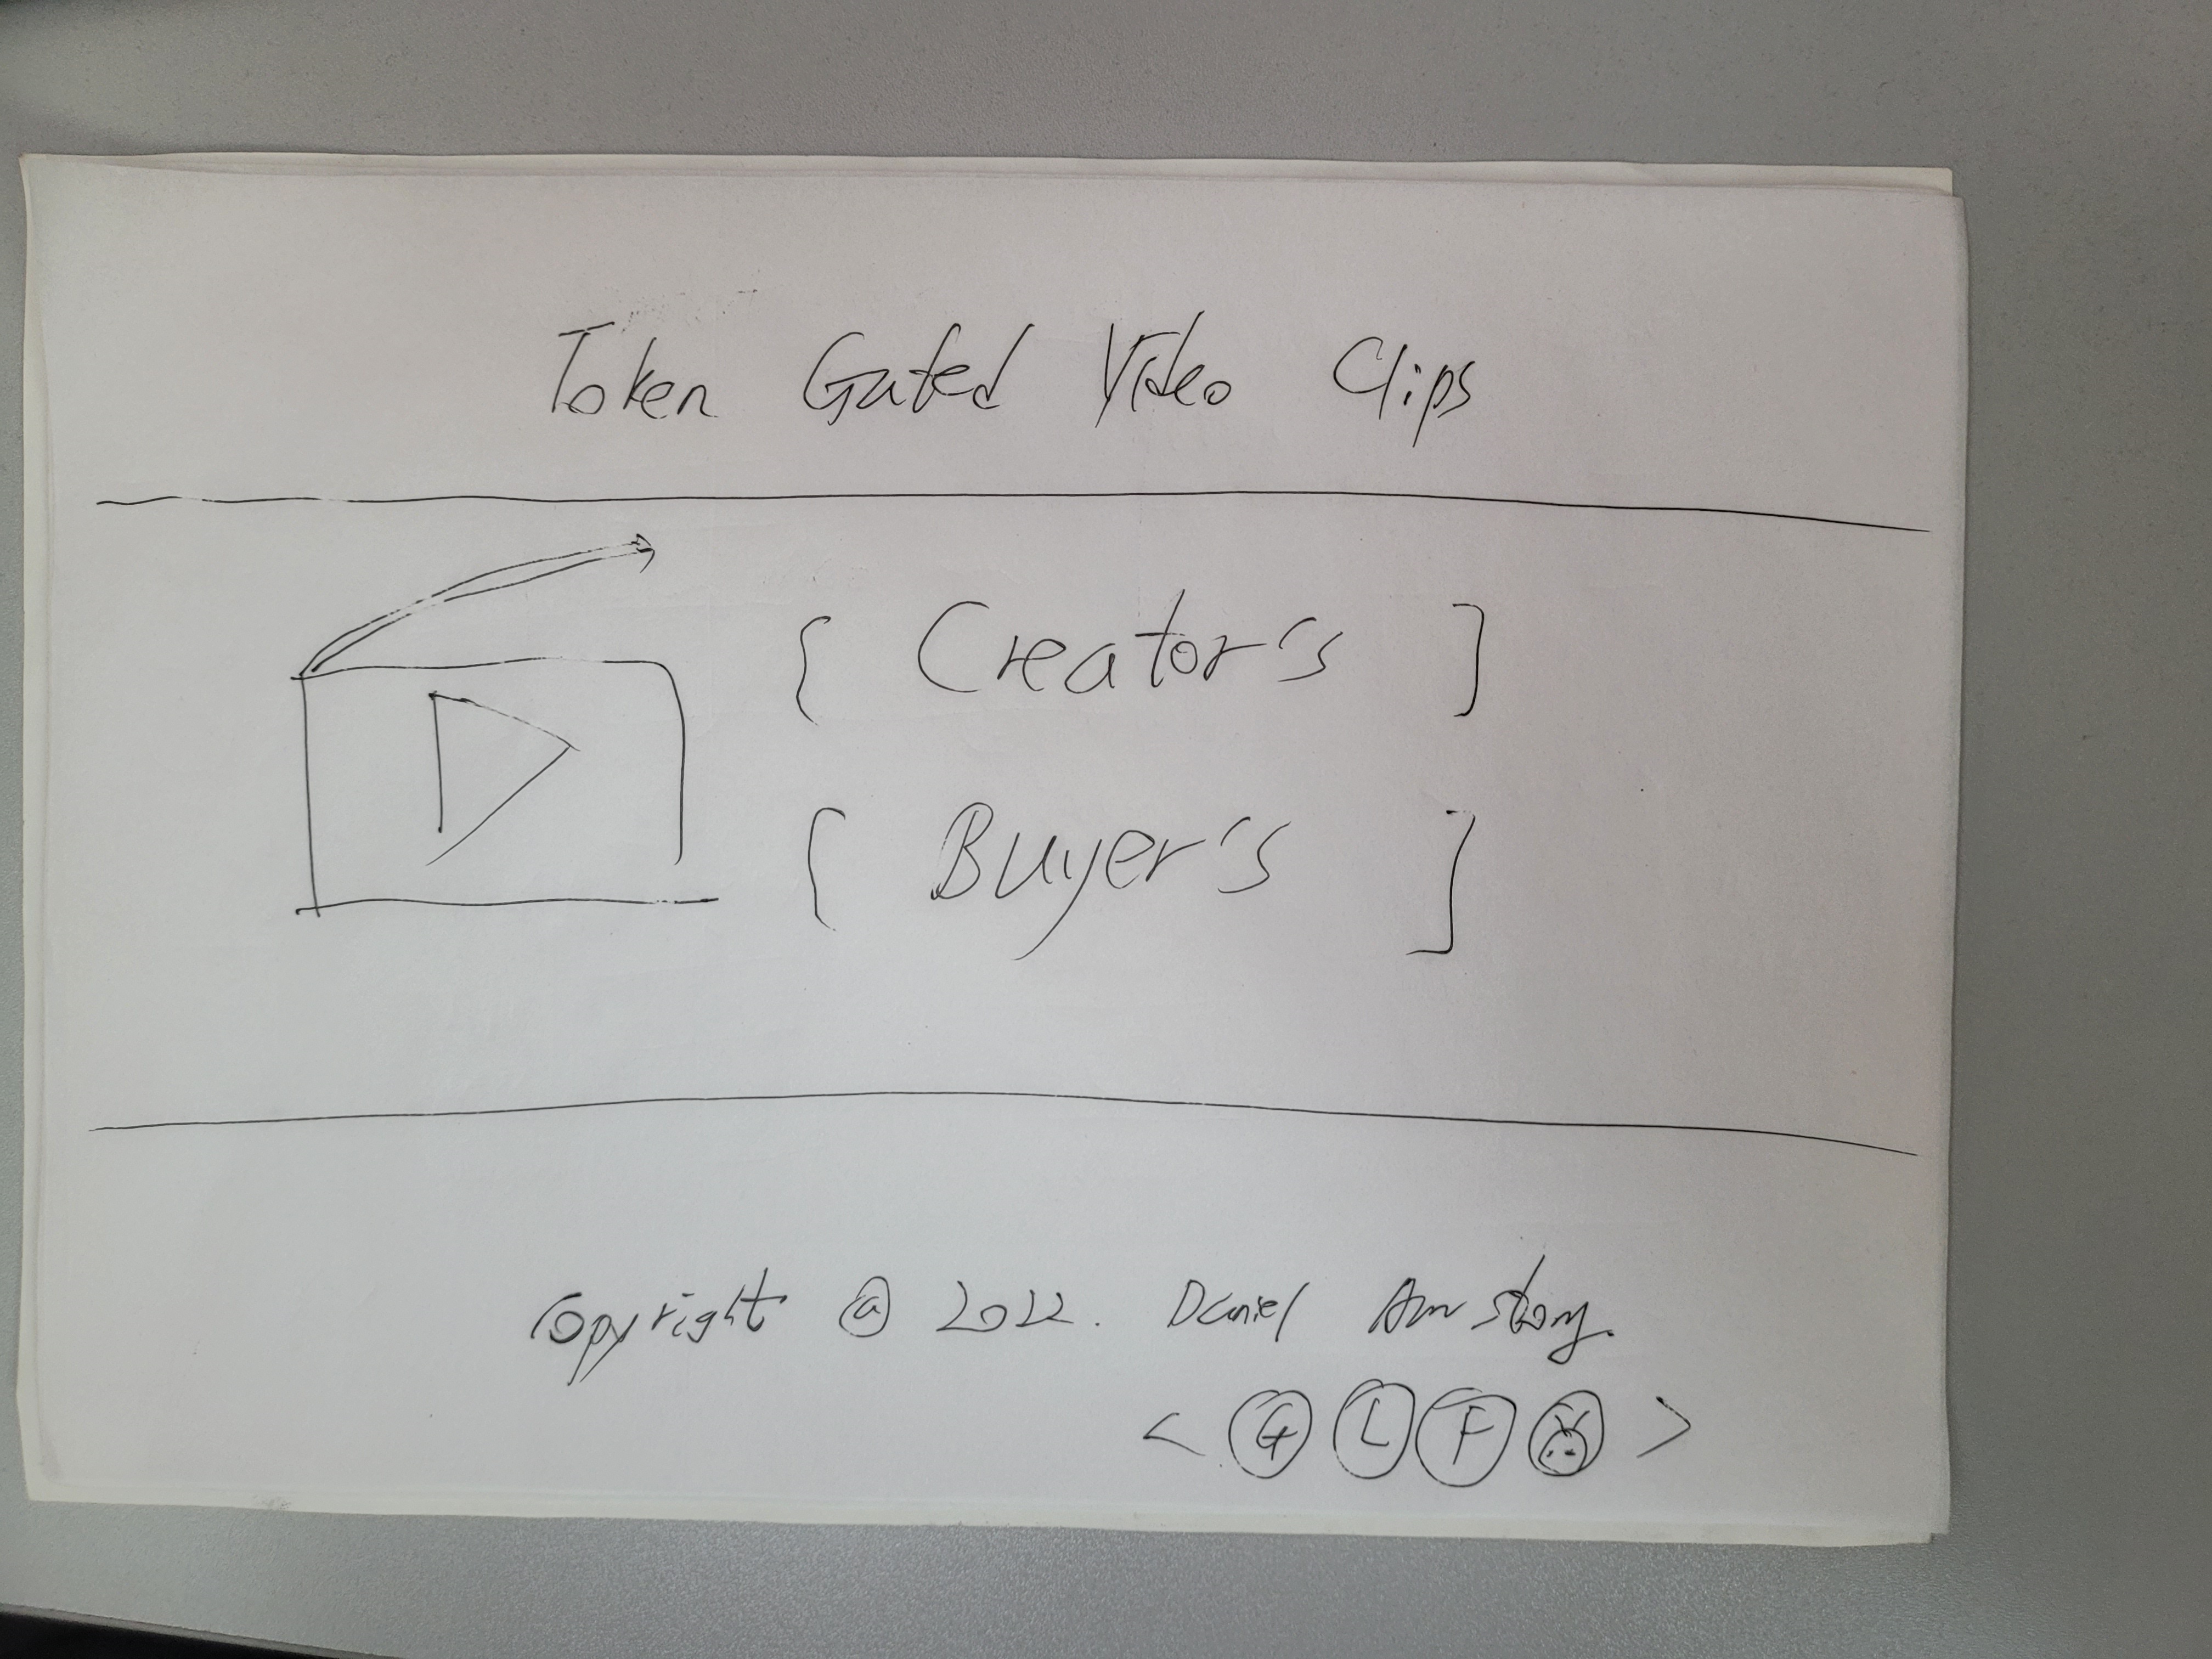 Token Gated Video Clips
{ Creator's ]
{ Buyer's ]
Copyright @ 2022. Daniel
< G L F >